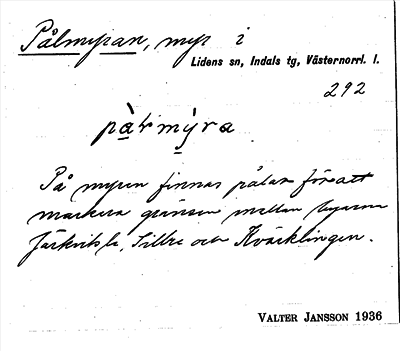 Pålmyran, myr i
Lidens sn, Indals tg, Västernorrl. l.
292
På myren finnas pålar för att
markera gränsen mellan byarna
Sillre och Kväcklingen.
VALTER JANSSON 1936